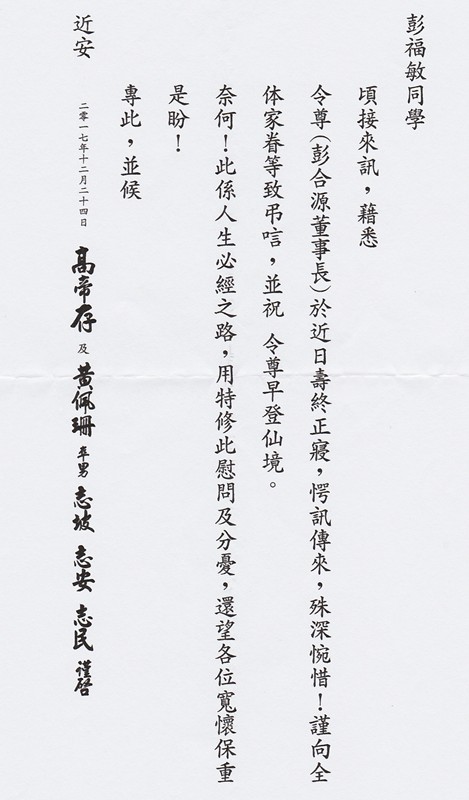 彭福敏同學
頃接來訊，藉悉
令尊(彭合源董事長)於近日壽終正寢，愕訊傳來，殊深惋惜！謹向全
体家眷等致弔唁，並祝 令尊早登仙境。
奈何！此係人生必經之路，用特修此慰問及分憂，還望各位寬懷保重
是盼！
專此，並候
近安 二零一七年十二月二十四日 高帝存 及 黃佩珊 率男 志坡 志安 志民 謹啓